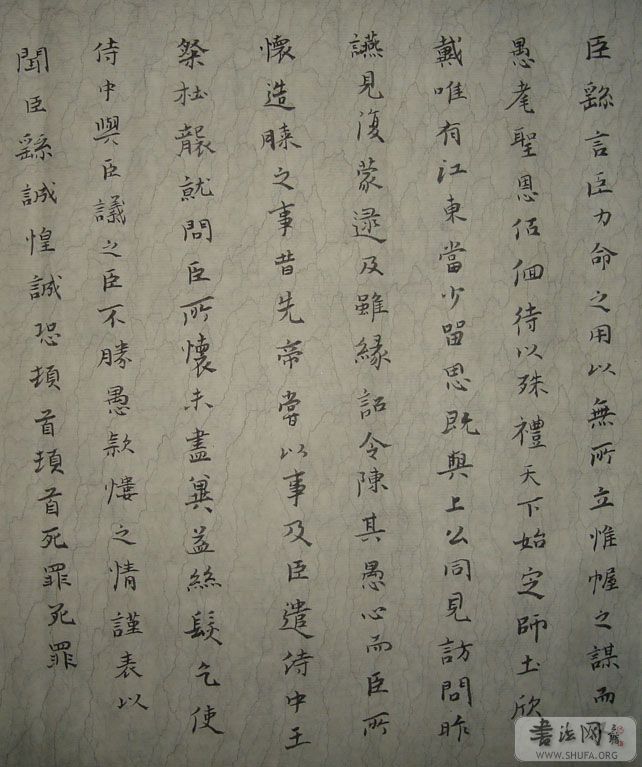 臣繇言臣力命之用以無所立惟幄之謀而
愚耄聖恩佰佪待以殊禮天下始定師土欣
戴唯有江東當少留思既與上公同見訪問昨
讌見復蒙逮及雖緣詔令陳其愚心而臣所
懷造膝之事昔先帝嘗以事及臣遣侍中王
粲杜襲就問臣所懷未盡冀益絲髮乞使
侍中與臣議之臣不勝愚款慺之情謹表以
聞臣繇誠惶誠恐頓首頓首死罪死罪
書法网
WWW.SHUFA.ORG